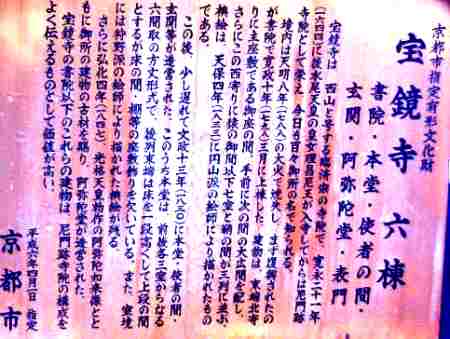 京都市指定有形文化財
宝鏡寺 六棟
書院・本堂・使者の間・
玄関・阿弥陀堂・表門
宝鏡寺は、西山と号する臨済宗の寺院で、寛永二十一年
(一六四四)に後水尾天皇の皇女理昌尼王が入寺してからは尼門跡
寺院として栄え、今日も百々御所の名で知られる。
境内は天明八年(一七八八)の大火で焼失し、まず復興されたの
が書院で寛政十年(一七九八)三月に上棟した。建物は、東端北寄
りに主座敷である御座の間、手前に次の間の大広間を配し、
さらにこの西寄りに使の御間以下七室と鞘の間が三列に並ぶ。
襖絵は、天保四年(一八三三)に円山派の絵師により描かれたもの
である。
この後、少し遅れて文政十三年(一八三〇)に本堂・使者の間・
玄関等が造営された。このうち本堂は、前後各三室からなる
六間取の方丈形式で、後列東端は床を一段高くして上段の間
とするが床の間・棚等の座敷飾りを欠いている。また、室境
には狩野派の絵師により描かれた襖絵が残る。
さらに弘化四年(一八四七)、光格天皇勅作の阿弥陀如来像とと
もに御所の建物の古材を賜り、阿弥陀堂が造営された。
宝鏡寺の書院以下のこれらの建物は、尼門跡寺院の構成を
よく伝えるものとして価値が高い。
平成六年四月一日 指定
京都市